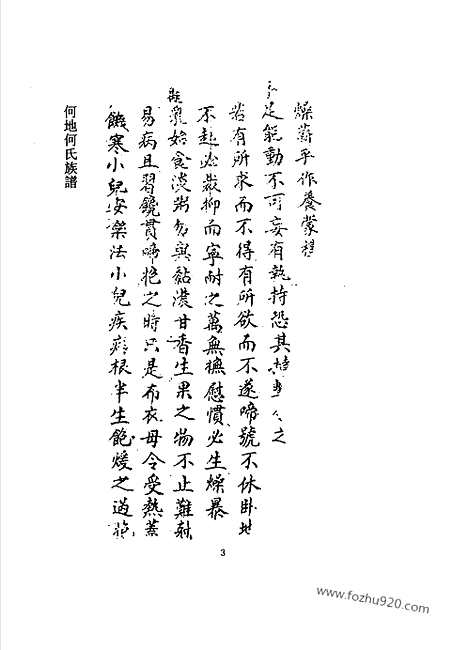 燥薪乎作養蒙禮
足能動不可妄有執持恐其
之
若有所求而不得有所欲而不遂啼號不休卧地
不起必裁抑而寧耐之萬無撫慰慣必生燥暴
乳始食淡粥勿與黏濃甘香生果之物不止難
易病且習饞貫啼抱之時只是布衣毋令受熱蓋
饑寒小兒安樂法小兒疾病根半生飽煖之過
何地何氏族譜
3
www.fozhu920.com